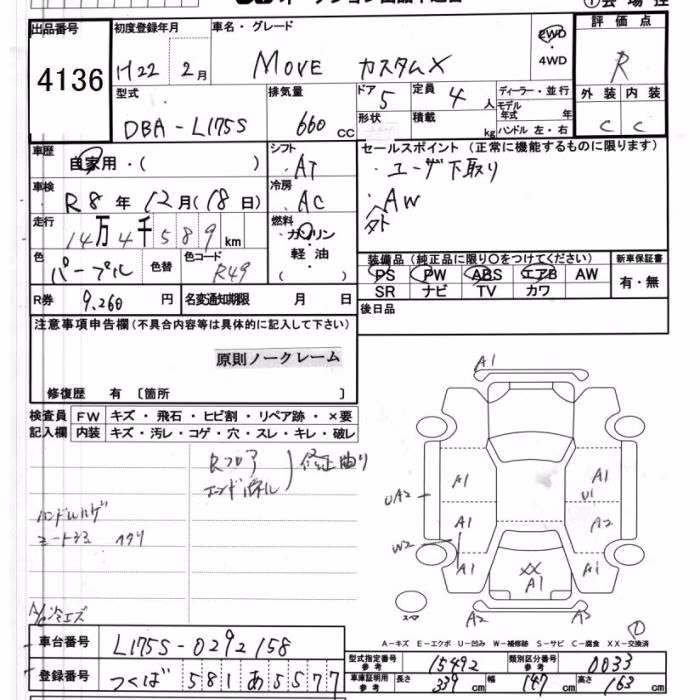 出品番号
4136
初度登録年月
H22 年 2月
車名・グレード
MOVE カスタムX
2WD
・4WD
評価点
R
外装 内装
C C
型式
DBA-L175S
排気量
660 cc
ドア 5
形状
定員 4 人
積載 kg
ディーラー・並行
モデル年式 年
ハンドル 左・右
車歴
自家用・( )
シフト
AT
冷房
AC
車検
R8 年 12月(18日)
走行
14万4千589 km
燃料
ガソリン
軽油
( )
色
パープル
色替
色コード
R49
R券 9,260 円
名変通知期限 月 日
セールスポイント (正常に機能するものに限ります)
・ユーザ下取り
・社外AW
装備品(純正品に限り○をつけてください)
PS PW ABS エアB AW
SR ナビ TV カワ
新車保証書
有・無
後日品
注意事項申告欄(不具合内容等は具体的に記入して下さい)
原則ノークレーム
修復歴 有 〔箇所 〕
検査員記入欄
FW キズ・飛石・ヒビ割・リペア跡・×要
内装 キズ・汚レ・コゲ・穴・スレ・キレ・破レ
Rフロア
エンドパネル
修正曲り
ハンドルハゲ
シートシミ ヘタリ
A1
A1
A1
UA2
A1
U1
A1
A2
W2
A1
A1
XX
A1
A2
A2
スペア
A-キズ E-エクボ U-凹み W-補修跡 S-サビ C-腐食 XX-交換済
車台番号
L175S-0292158
登録番号
つくば 581 あ 5577
型式指定番号 参考
15492
類別区分番号 参考
0033
車庫証明用 参考
長さ 339 cm
幅 147 cm
高さ 163 cm